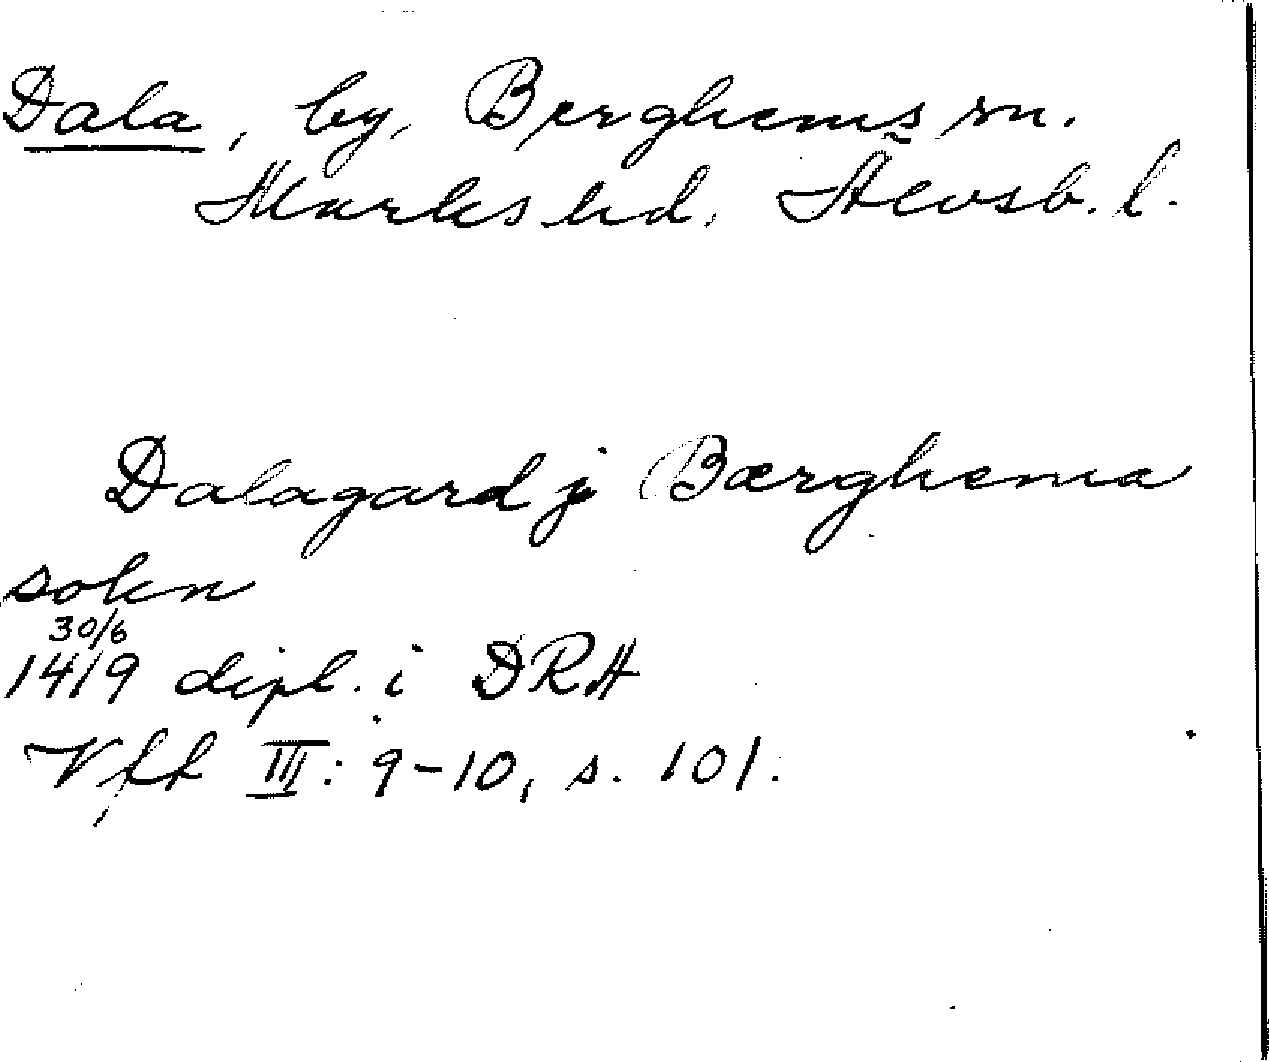 Dala, by, Berghems sn.
Marks hd, Älvsb. l.
Dalagard j Bærghema
sokn
30/6
1419 dipl. i DRA
Vfft III: 9-10, s. 101.